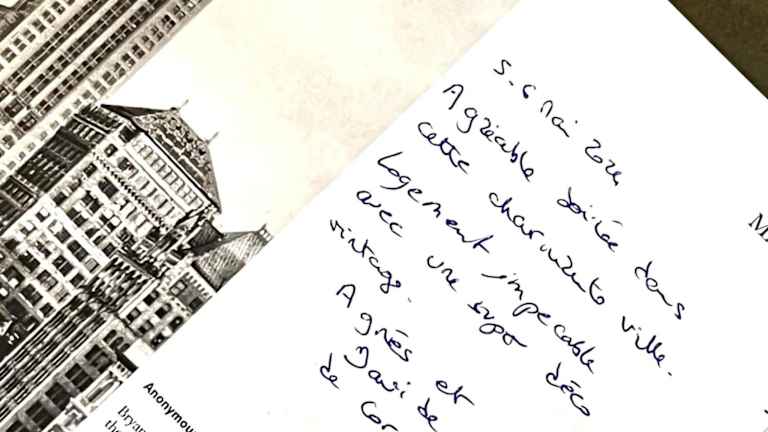 5-6 Mai 2024
Agréable soirée dans
cette charmante ville.
Logement impecable
avec une super déco
vintage.
Agnès et
de Cor
Anonymou
Bryan
the
M